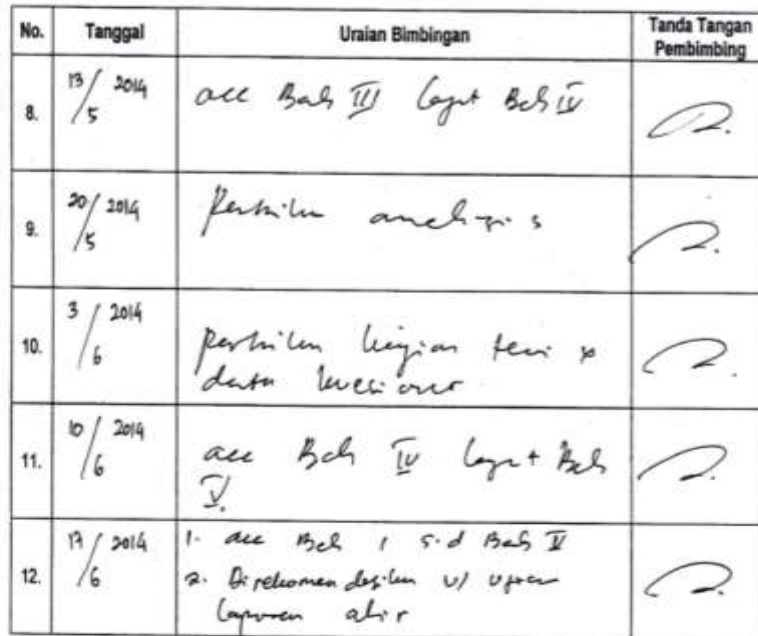 No. Tanggal Uraian Bimbingan Tanda Tangan Pembimbing
8. 13/5 2014 acc Bab III Lanjut Bab IV
9. 20/5 2014 Perbaiki analisis
10. 3/6 2014 perbaiki kajian teori &
data kuesioner
11. 10/6 2014 acc Bab IV Lanjut Bab
V.
12. 17/6 2014 1. acc Bab I s.d Bab V
2. Direkomendasikan u/ ujian
Laporan akhir